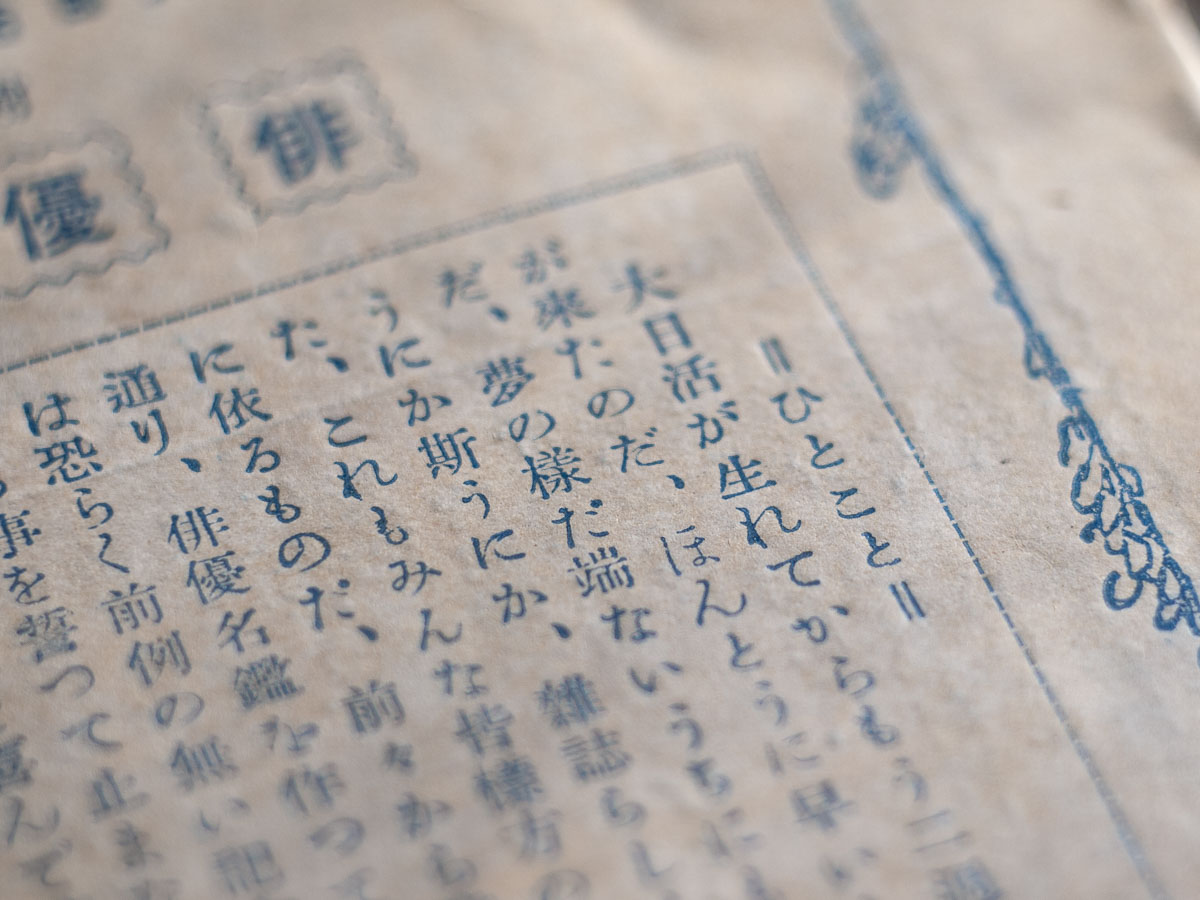 俳優
＝ひとこと＝
大日活が生れてからもう二週
が来たのだ、ほんとうに早い
だ、夢の様だ端ないうちに
うにか斯うにか、雑誌らし
た、これもみんな皆様方の
に依るものだ、前々から
通り、俳優名鑑を作つて
は恐らく前例の無い記
事を誓つて止ま